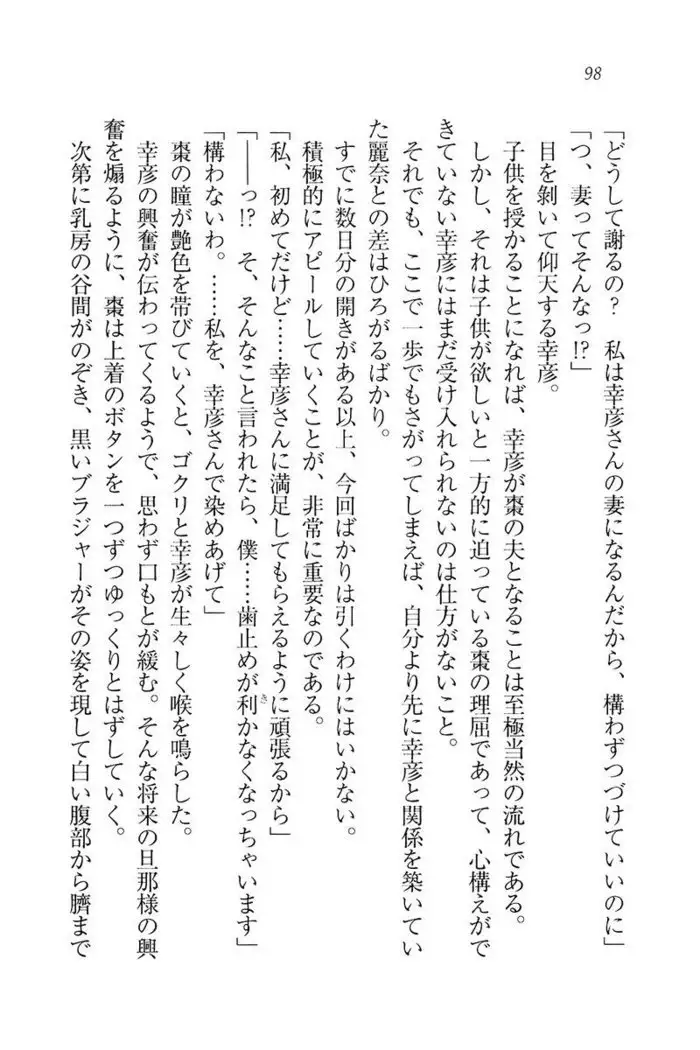 98
「どうして謝るの？　私は幸彦さんの妻になるんだから、構わずつづけていいのに」
「つ、妻ってそんなっ!?」
目を剝いて仰天する幸彦。
子供を授かることになれば、幸彦が棗の夫となることは至極当然の流れである。
しかし、それは子供が欲しいと一方的に迫っている棗の理屈であって、心構えがで
きていない幸彦にはまだ受け入れられないのは仕方がないこと。
それでも、ここで一歩でもさがってしまえば、自分より先に幸彦と関係を築いてい
た麗奈との差はひろがるばかり。
すでに数日分の開きがある以上、今回ばかりは引くわけにはいかない。
積極的にアピールしていくことが、非常に重要なのである。
「私、初めてだけど……幸彦さんに満足してもらえるように頑張るから」
「――っ!?　そ、そんなこと言われたら、僕……歯止めが利かなくなっちゃいます」
「構わないわ。……私を、幸彦さんで染めあげて」
棗の瞳が艶色を帯びていくと、ゴクリと幸彦が生々しく喉を鳴らした。
幸彦の興奮が伝わってくるようで、思わず口もとが緩む。そんな将来の旦那様の興
奮を煽るように、棗は上着のボタンを一つずつゆっくりとはずしていく。
次第に乳房の谷間がのぞき、黒いブラジャーがその姿を現して白い腹部から臍まで